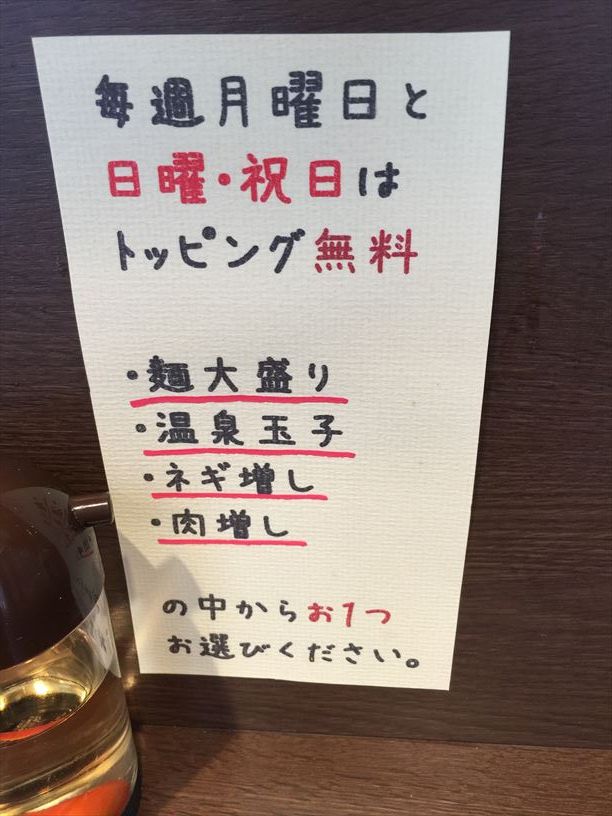 毎週月曜日と
日曜・祝日は
トッピング無料
・麺大盛り
・温泉玉子
・ネギ増し
・肉増し
の中からお1つ
お選びください。